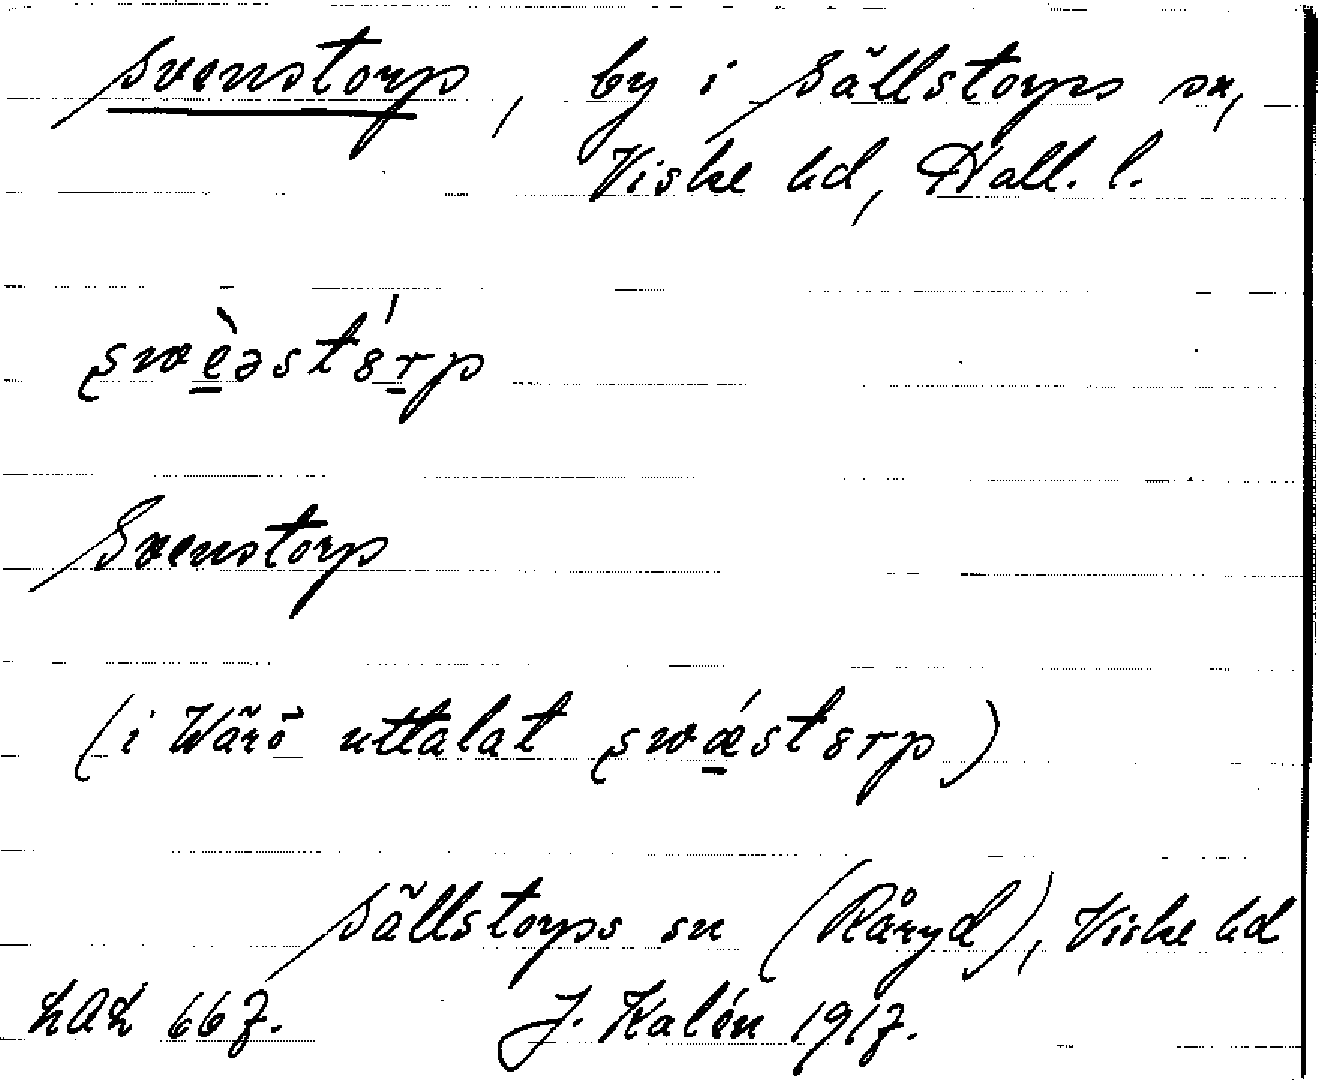 Svenstorp, by i Sällstorps sn,
Viske hd, Hall. l.
swèəst8́rp
Svenstorp
(i Wärö uttalat swǽst8rp)
Sällstorps sn (Råryd), Viske hd
LAL 667. J. Kalén 1917.